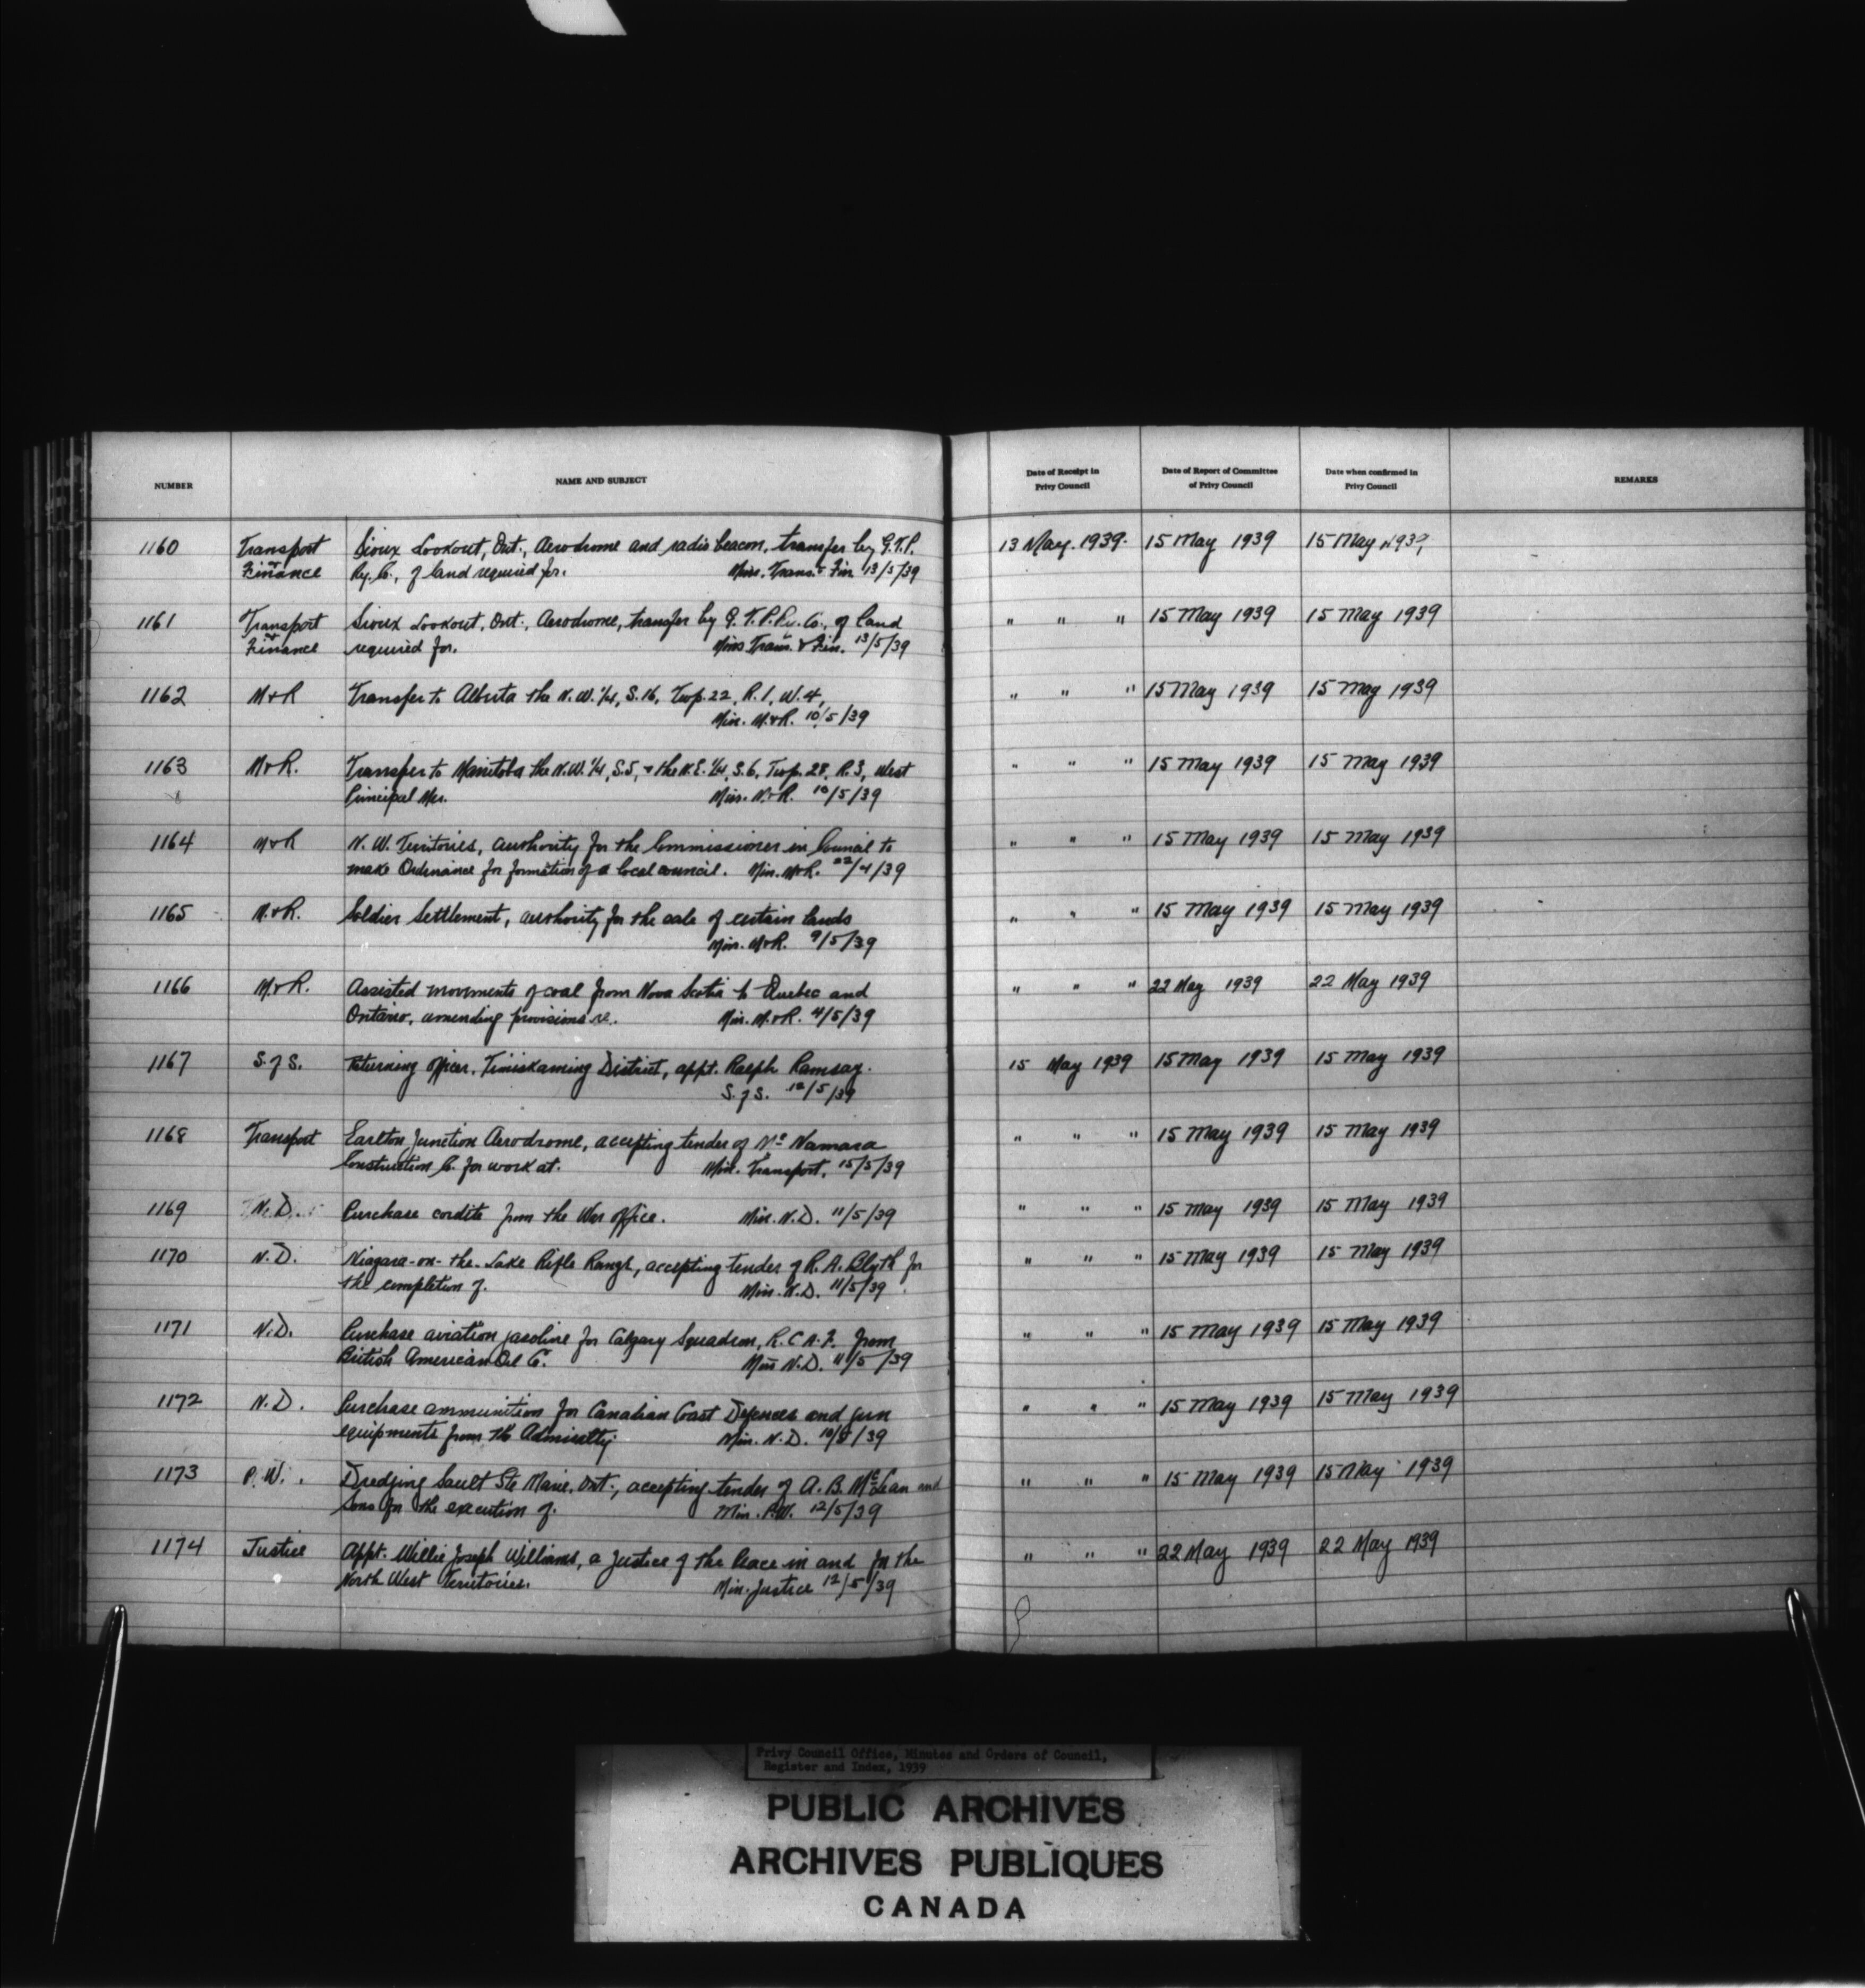 NUMBER NAME AND SUBJECT Date of Receipt in Privy Council Date of Report of Committee of Privy Council Date when confirmed in Privy Council REMARKS
1160 Transport Sioux Lookout, Ont., Aerodrome and radio beacon, transfer by G.T.P. 13 May. 1939. 15 May 1939 15 May 1939
+ Finance Ry. Co., of land required for. Mins. Trans. + Fin 13/5/39
1161 Transport Sioux Lookout, Ont., Aerodrome, transfer by G.T.P. Ry. Co., of land " " " 15 May 1939 15 May 1939
+ Finance required for. Mins Trans. + Fin. 13/5/39
1162 M+R Transfer to Alberta the N.W. 1/4, S. 16, Twp. 22, R. 1, W. 4, " " " 15 May 1939 15 May 1939
Min. M.+R. 10/5/39
1163 M+R. Transfer to Manitoba the N.W. 1/4, S.5, + the N.E. 1/4, S. 6, Twp. 28, R. 3, West " " " 15 May 1939 15 May 1939
Principal Mer. Min. M.+R. 10/5/39
1164 M+R N.W. Territories, authority for the Commissioner in Council to " " " 15 May 1939 15 May 1939
make Ordinance for formation of a local council. Min. M+R. 22/4/39
1165 M.+R. Soldier Settlement, authority for the sale of certain lands " " " 15 May 1939 15 May 1939
Min. M+R. 9/5/39
1166 M.+R. Assisted movements of coal from Nova Scotia to Quebec and " " " 22 May 1939 22 May 1939
Ontario, amending provisions re. Min. M.+R. 4/5/39
1167 S. of S. Returning Officer, Timiskaming District, appt. Ralph Ramsay. 15 May 1939 15 May 1939 15 May 1939
S. of S. 12/5/39
1168 Transport Earlton Junction Aerodrome, accepting tender of Mc Namara " " " 15 May 1939 15 May 1939
Construction Co. for work at. Min. Transport. 15/5/39
1169 N.D. Purchase cordite from the War Office. Min. N.D. 11/5/39 " " " 15 May 1939 15 May 1939
1170 N.D. Niagara-on-the-Lake Rifle Range, accepting tender of R. A. Blyth for " " " 15 May 1939 15 May 1939
the completion of. Min. N.D. 11/5/39
1171 N.D. Purchase aviation gasoline for Calgary Squadron, R.C.A.F. from " " " 15 May 1939 15 May 1939
British American Oil Co. Min N.D. 11/5/39
1172 N.D. Purchase ammunition for Canadian Coast Defences and gun " " " 15 May 1939 15 May 1939
equipments from the Admiralty. Min. N.D. 10/5/39
1173 P.W. Dredging Sault Ste Marie, Ont., accepting tender of A. B. McLean and " " " 15 May 1939 15 May 1939
Sons for the execution of. Min. P.W. 12/5/39
1174 Justice Appt. Willie Joseph Williams, a Justice of the Peace in and for the " " " 22 May 1939 22 May 1939
North West Territories. Min. Justice 12/5/39
Privy Council Office, Minutes and Orders of Council,
Register and Index, 1939
PUBLIC ARCHIVES
ARCHIVES PUBLIQUES
CANADA